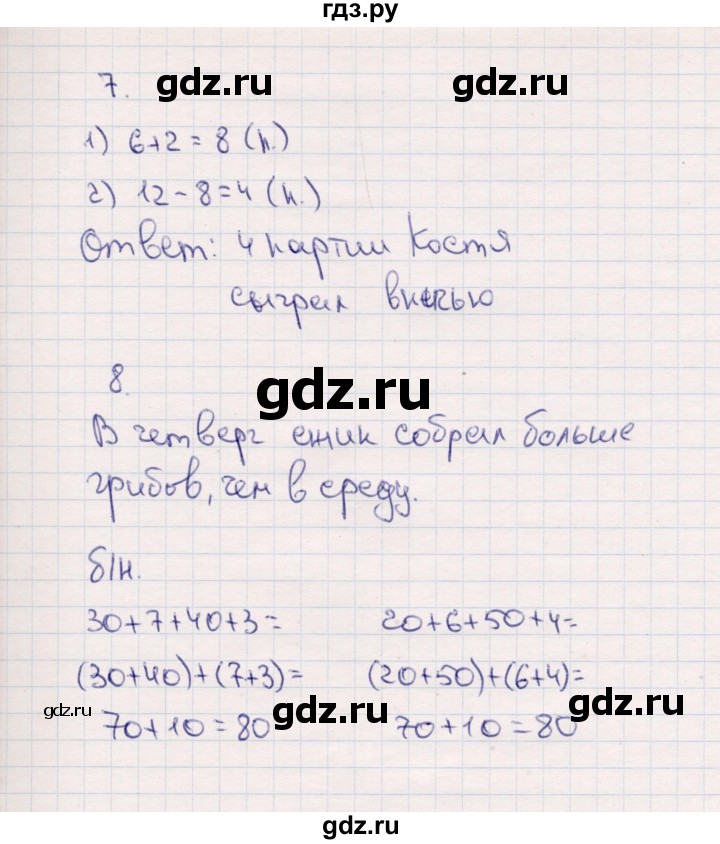 гдз.ру
7.
gdz.ru gdz.ru
1) 6+2=8 (п.)
2) 12-8=4 (п.)
Ответ: 4 партии Костя
сыграл вничью
8.
gdz.ru
В четверг ежик собрал больше
грибов, чем в среду.
б/н.
30+7+40+3= 20+6+50+4=
(30+40)+(7+3)= (20+50)+(6+4)=
gdz.ru gdz.ru gdz.ru
70+10=80 70+10=80
gdz.ru